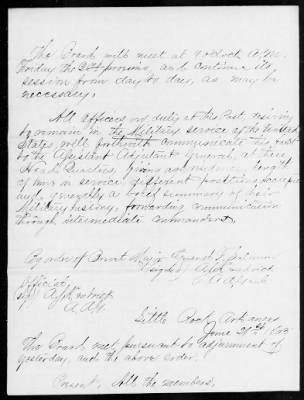 The Board will meet at 9 o'clock A.M.
Monday the 20th proximo, and continue its
session from day to day, as may be
necessary.
All officers on duty at this Post, desiring
to remain in the Military service of the United
States will forthwith communicate this
to the Assistant Adjutant General, at these
Head Quarters, giving age, residence, length
of time in service different positions occupied
and generally a brief summary of their
Military history, forwarding communication
through intermediate commanders.
By order of Brevet Major General
(signed)
Official
A.A.G.
Little Rock Arkansas
June 21st
The Board met pursuant to adjournment of
yesterday, and the above order.
Present, All the members,